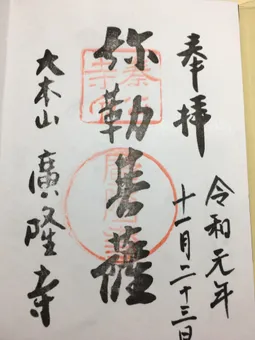 奉拝
令和元年
十一月二十三日
弥勒菩薩
大本山
廣隆寺